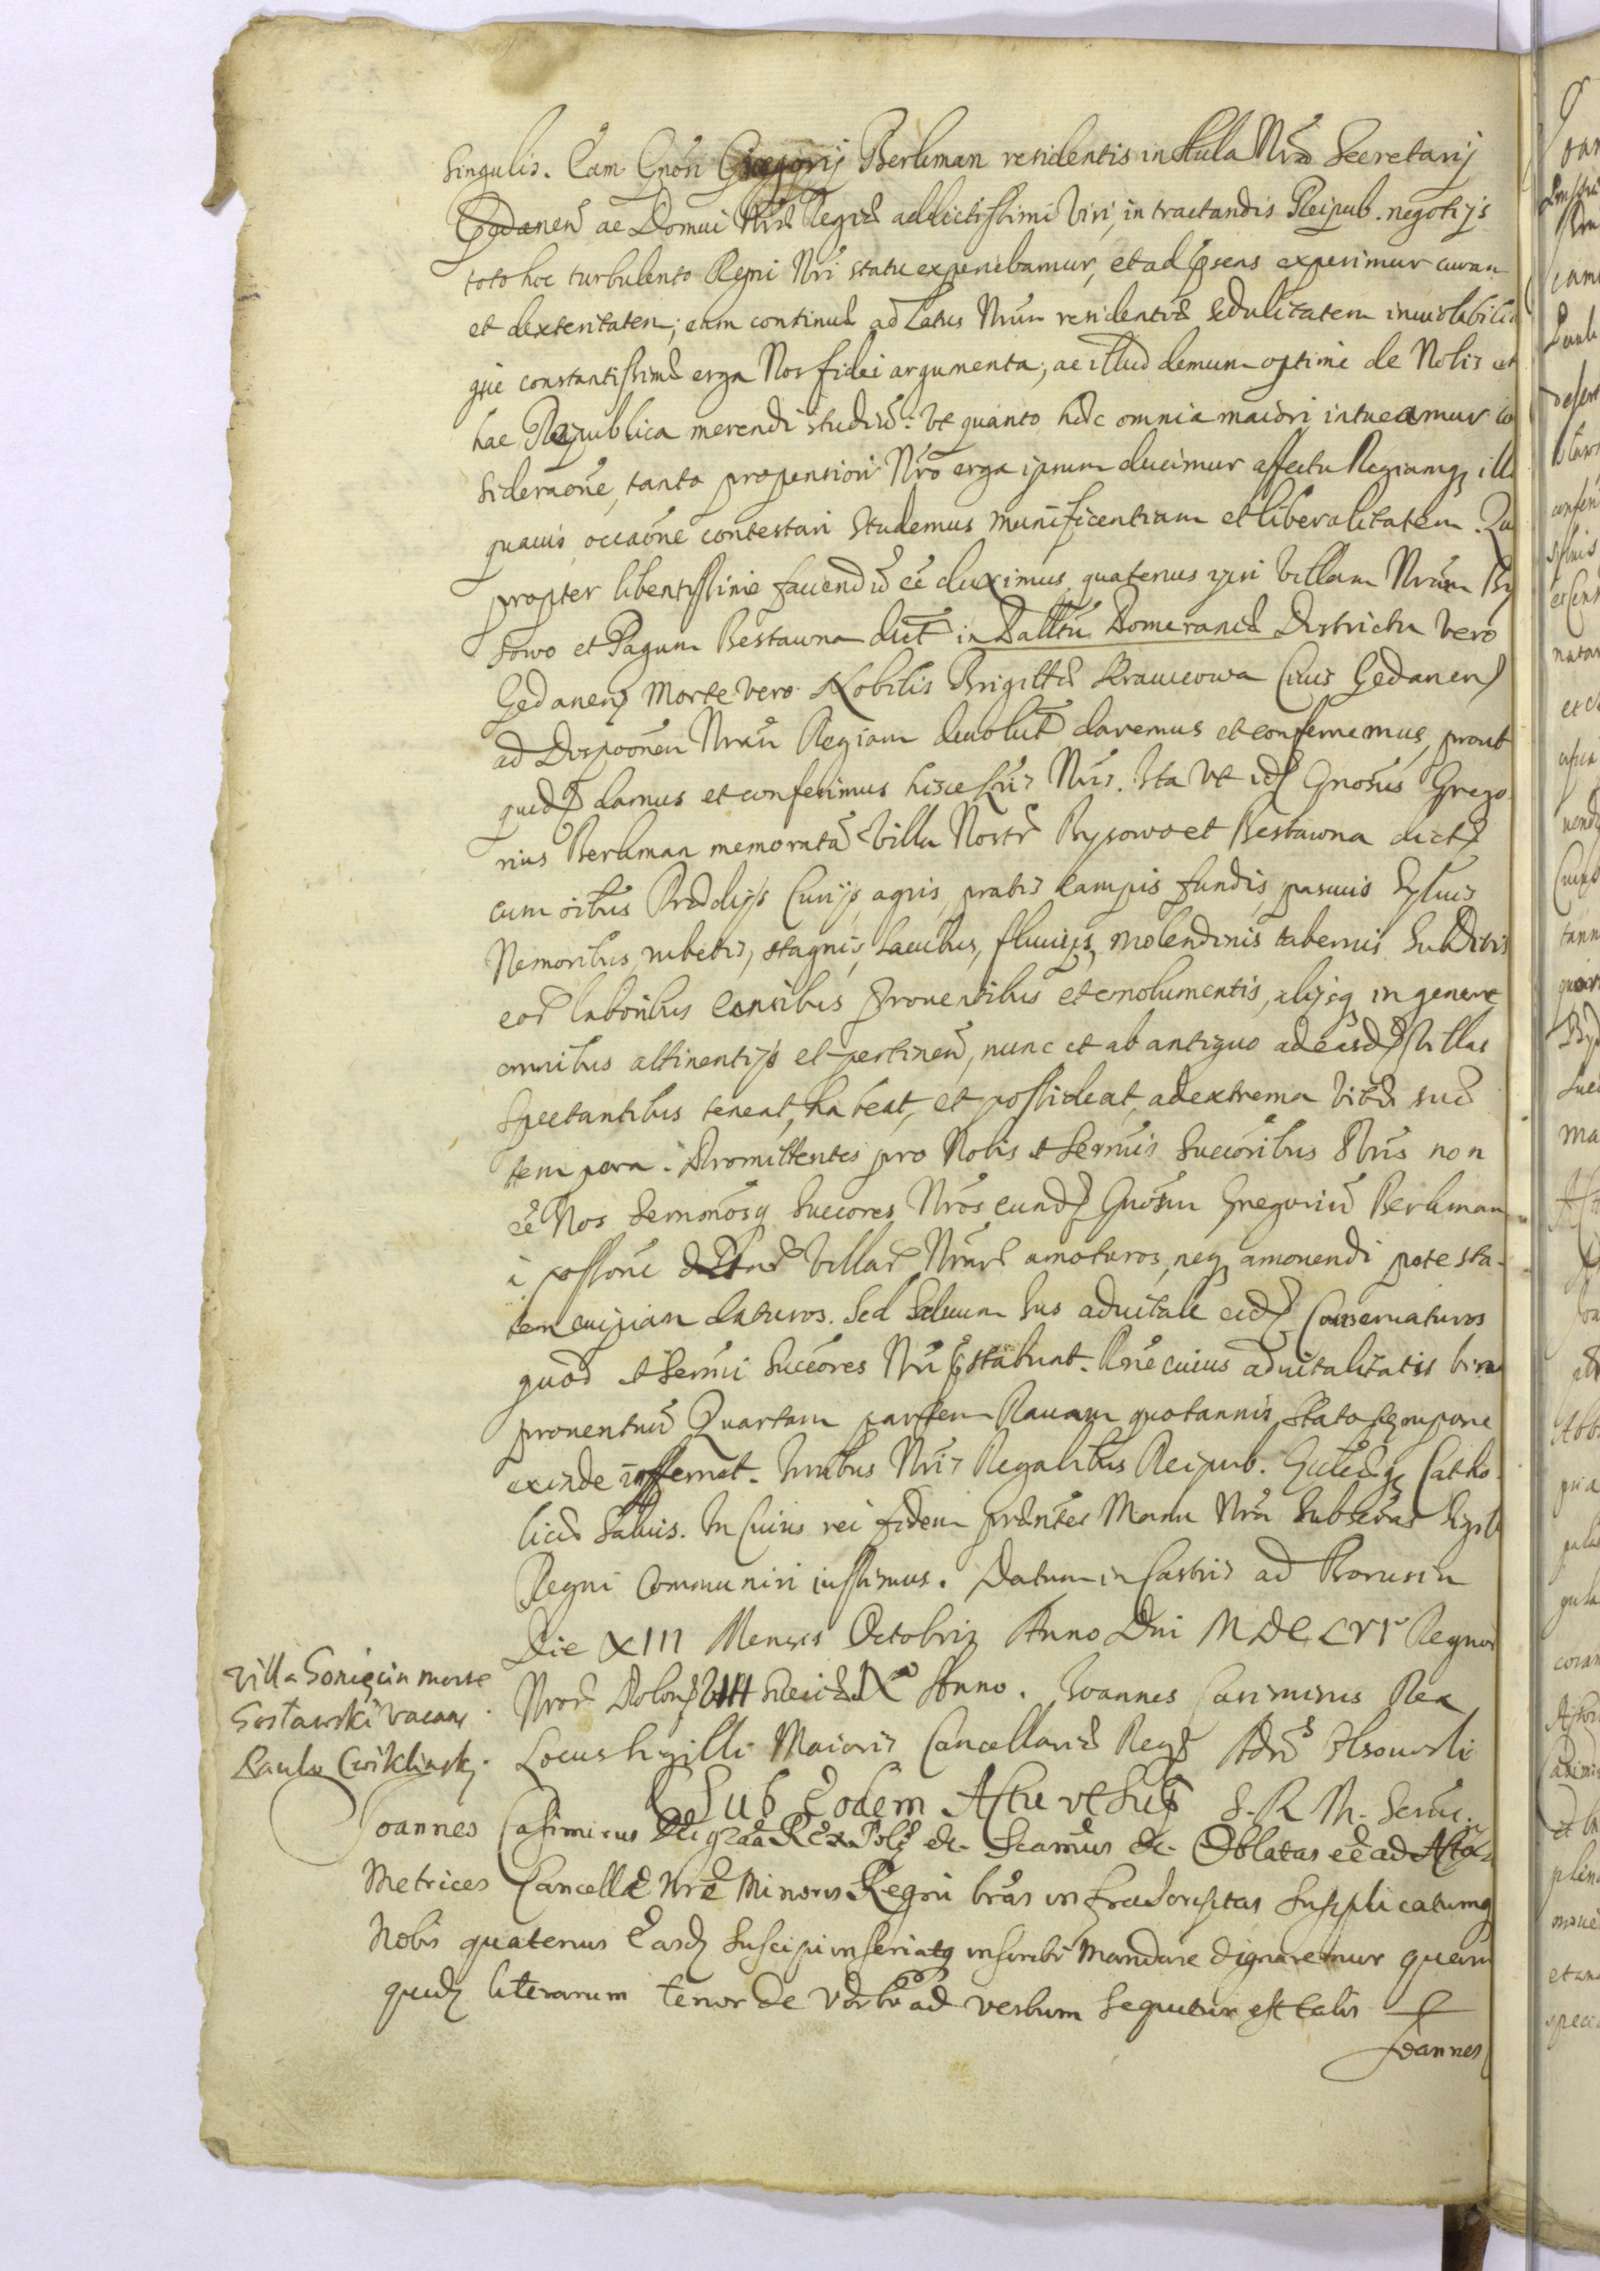 singulis. Eam Gnosi Gregorij Berkman residentis in Aula Nra Secretarij
Gedanen ac Domui Nrae Regiae addictissimi Viri, in tractandis Reipub. negotijs
toto hoc turbulento Regni Nri statu experiebamur, et ad psens experimur curam
et dexteritatem; eam continuae ad Latus Nrum residentiae sedulitatem inuiolabilis
que constantissimae erga Nos fidei argumenta; ac illud demum optime de Nobis et
hac Republica merendi studiu. Vt quanto haec omnia maiori intueamur co
sideraone, tanto propensiori Nro erga ipsum ducimur affectu Regiamq illi
quauis occaone contestari studemus munificentiam et liberalitatem. Qua
propter libentissime fauendu ee duximus quatenus ipsi Villam Nram Ry
sowo et Pagum Bestawna dict in Palltu Pomeraniae Districtu vero
Gedanen Morte vero Nobilis Brigittae Krawcowa Ciuis Gedanen
ad Disponem Nram Regiam deuolut daremus et conferremus, prout
quidem damus et conferimus hisce Lris Nris. Ita vt id Gnosus Grego
rius Berkman memorata Villa Nostr Rysowo et Bestawna dict
cum oibus Praedijs Curijs agris, pratis campis fundis, pascuis Syluis
Nemoribus, rubetis, stagnis, lacubus, fluuijs, molendinis tabernis Subditis
eor laboribus censibus prouentibus et emolumentis, alijsq in genere
omnibus attinentijs et pertinen, nunc et ab antiquo ad easd Villas
spectantibus teneat, habeat, et possideat, ad extrema vitae suae
tempora. Promittentes pro Nobis et Sermis Succoribus Nris non
ee Nos Sermosq Succores Nros eund Gnosum Gregoriu Berkman
a possone dictar Villar Nrar amoturos, neq amouendi potesta-
tem cuipiam daturos. Sed saluum Ius aduitale eid Conseruaturos
quod et Sermi Succores Nri pstabunt. Rne cuius aduitalitatis
prouentuu Quartam partem Rauam quotannis, stato tempore
exinde inferret. Iuribus Nris Regalibus Reipub. Catho-
licae Saluis. In Cuius rei fidem prntes Manu Nra Subscras Sigill
Regni Communiri iussimus. Datum in Castris ad
Die XIII Mensis Octobris Anno Dni MDCLVI Regnor
Nror Polon VIII Sueciae IX Anno. Ioannes Casimirus Rex
Locus Sigilli Maioris Cancellariae Regni
Sub Eodem Actu vt Sup S. R. M. Secr.
Villa Goniecin morte
Gostawski vacans
Paulo Cwiklinski
Ioannes Casimirus Dei graa Rex Pol &c. Scamus &c. Oblatas ee ad Acta
Metrices Cancellae Nrae Minoris Regni lras infrascriptas Supplicatumq
Nobis quatenus Easd suscipi inseri atq inscribi mandare dignaremur quarum
quid literarum tenor de verbo ad verbum sequitur est talis
Ioannes